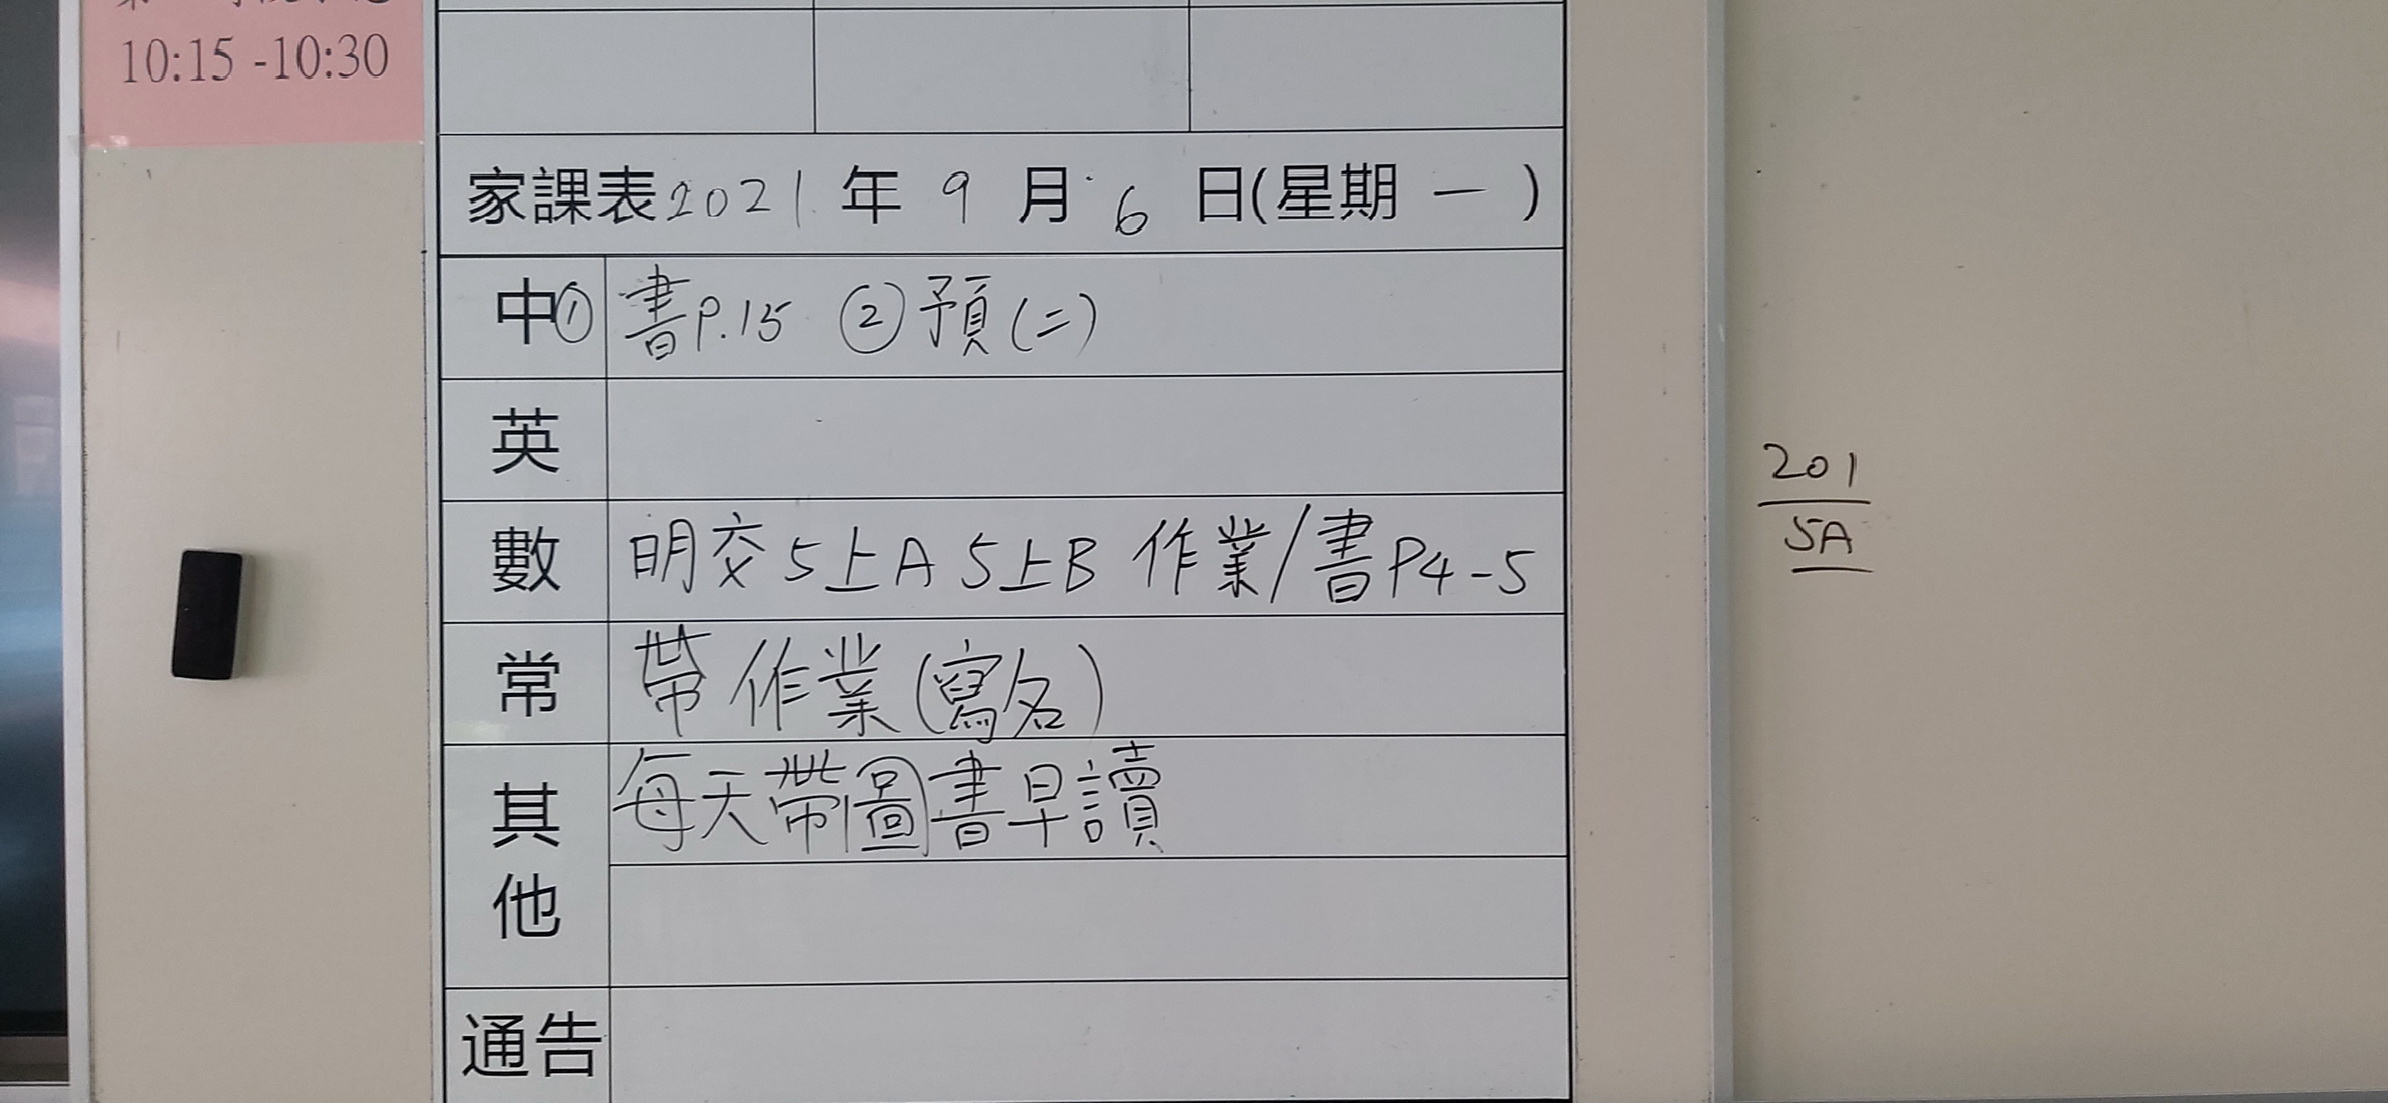 10:15 -10:30
家課表2021年9月6日(星期一)
中① 書P.15 ②預(二)
英
數 明交5上A 5上B 作業/書P4-5
常 帶作業(寫名)
其他 每天帶圖書早讀
通告
201
5A